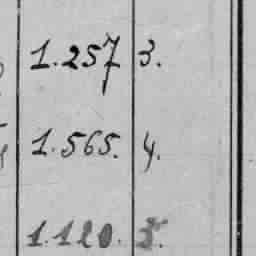 1.257 3.
1.565. 4.
1.120. 5.